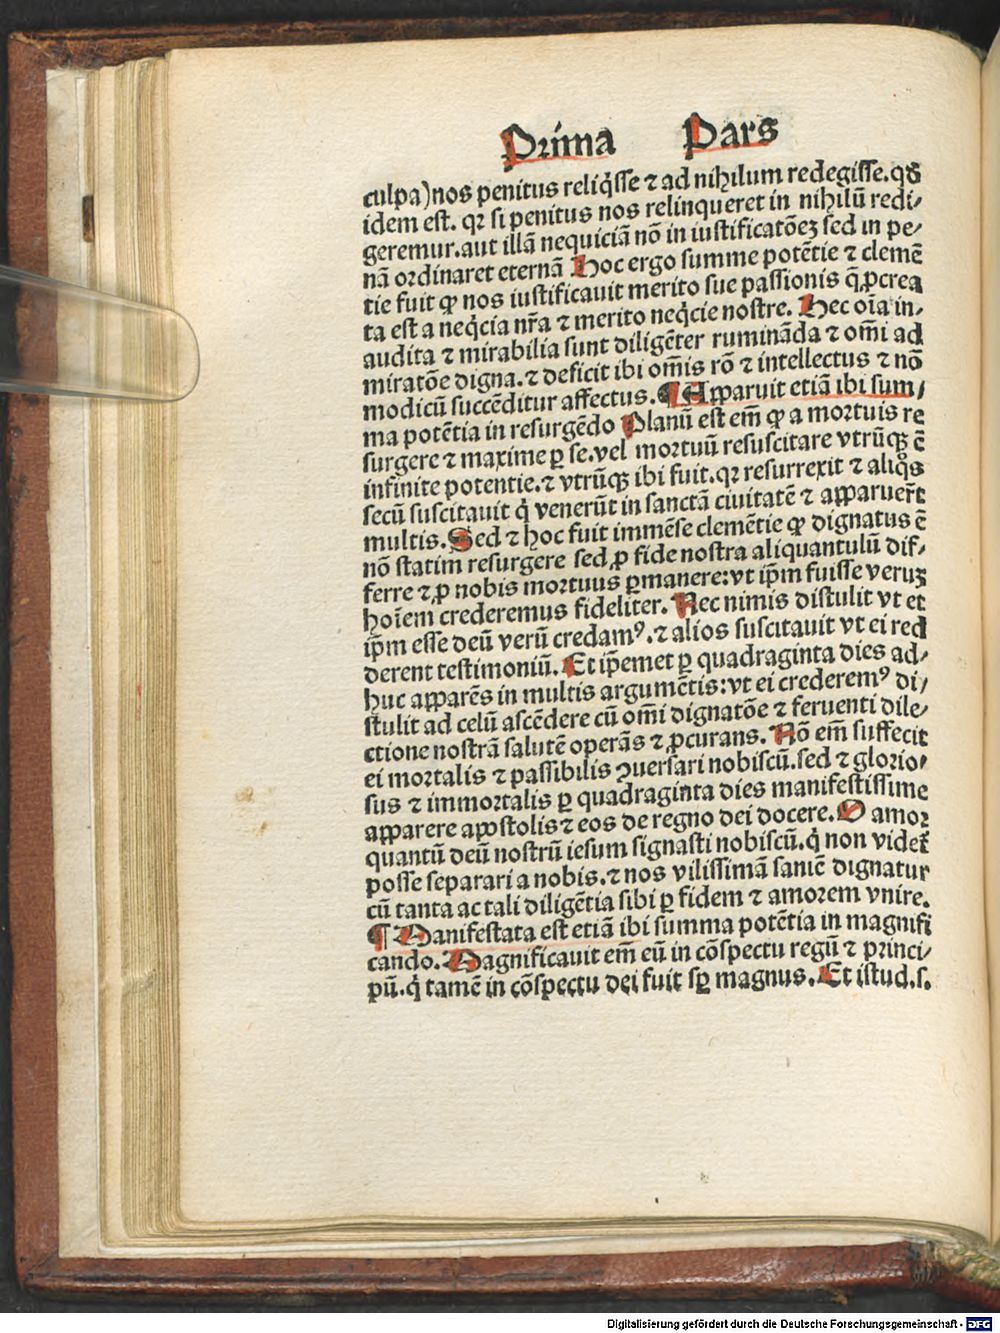 Prima Pars
culpa) nos penitus reliq̇sse ⁊ ad nihilum redegisse. qđ
idem est. qꝛ si penitus nos relinqueret in nihilū redi⸗
geremur. aut illā nequiciā nō in iustificatōeꝫ sed in pe⸗
nā ordinaret eternā Hoc ergo summe potētie ⁊ clemē
tie fuit ꝙ nos iustificauit merito sue passionis q̄ ꝓcrea
ta est a neq̇cia nr̄a ⁊ merito neq̇cie nostre. Hec oīa in⸗
audita ⁊ mirabilia sunt diligēter rumināda ⁊ om̄i ad
miratōe digna. ⁊ deficit ibi om̄is rō ⁊ intellectus ⁊ nō
modicū succēditur affectus. ¶ Apparuit etiā ibi sum⸗
ma potētia in resurgēdo Planū est em̄ ꝙ a mortuis re
surgere ⁊ maxime ꝑ se. vel mortuū resuscitare vtrūqꝫ ē
infinite potentie. ⁊ vtrūqꝫ ibi fuit. qꝛ resurrexit ⁊ aliq̊s
secū suscitauit q̇ venerūt in sanctā ciuitatē ⁊ apparuer̄t
multis. Sed ⁊ hoc fuit immēse clemētie ꝙ dignatus ē
nō statim resurgere sed ꝓ fide nostra aliquantulū dif⸗
ferre ⁊ ꝓ nobis mortuus ꝑmanere: vt ip̄m fuisse veruꝫ
hoīem crederemus fideliter. Nec nimis distulit vt et
ip̄m esse deū verū credamꝰ. ⁊ alios suscitauit vt ei red
derent testimoniū. Et ip̄emet ꝑ quadraginta dies ad⸗
huc apparēs in multis argumētis: vt ei crederemꝰ di⸗
stulit ad celū ascēdere cū om̄i dignatōe ⁊ feruenti dile⸗
ctione nostrā salutē operās ⁊ ꝓcurans. Nō em̄ suffecit
ei mortalis ⁊ passibilis ꝯuersari nobiscū. sed ⁊ glorio⸗
sus ⁊ immortalis ꝑ quadraginta dies manifestissime
apparere apostolis ⁊ eos de regno dei docere. O amor
quantū deū nostrū iesum signasti nobiscū. q̇ non videt̄
posse separari a nobis. ⁊ nos vilissimā saniē dignatur
cū tanta ac tali diligētia sibi ꝑ fidem ⁊ amorem vnire.
¶ Manifestata est etiā ibi summa potētia in magnifi
cando. Magnificauit em̄ eū in cōspectu regū ⁊ princi⸗
pū. q̇ tamē in cōspectu dei fuit sꝑ magnus. Et istud. s.
Digitalisierung gefördert durch die Deutsche Forschungsgemeinschaft - DFG